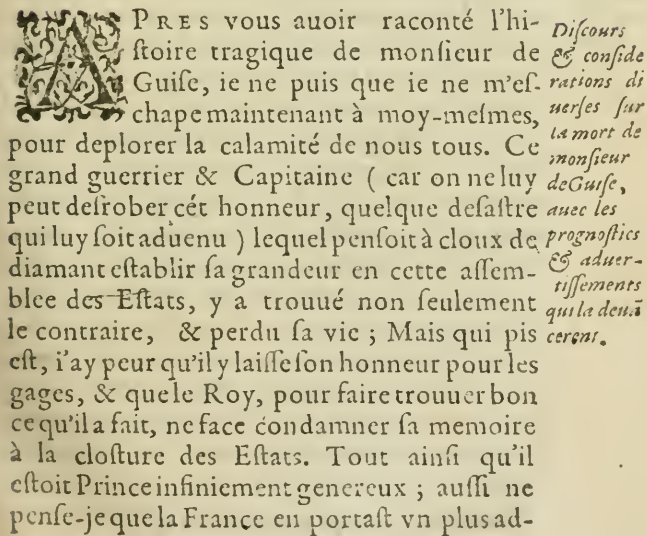 APRES vous auoir raconté l'hi-
ſtoire tragique de monſieur de
Guiſe, ie ne puis que ie ne m'eſ-
chape maintenant à moy-meſmes,
pour deplorer la calamité de nous tous. Ce
grand guerrier & Capitaine ( car on ne luy
peut deſrober cét honneur, quelque deſaſtre
qui luy ſoit aduenu ) lequel penſoit à cloux de
diamant eſtablir ſa grandeur en cette aſſem-
blee des Eſtats, y a trouué non ſeulement
le contraire, & perdu ſa vie ; Mais qui pis
eſt, i'ay peur qu'il y laiſſe ſon honneur pour les
gages, & que le Roy, pour faire trouuer bon
ce qu'il a fait, ne face condamner ſa memoire
à la cloſture des Eſtats. Tout ainſi qu'il
eſtoit Prince infiniement genereux ; auſſi ne
penſe-je que la France en portaſt vn plus ad-
Diſcours
& conſide
rations di
uerſes ſur
la mort de
monſieur
de Guiſe,
auec les
prognoſtics
& aduer-
tiſſements
qui la deuā
cerent.